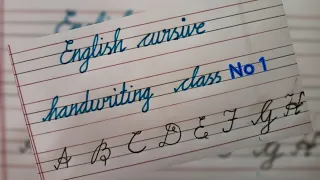 English cursive
handwriting class No 1
A B C D E F G H